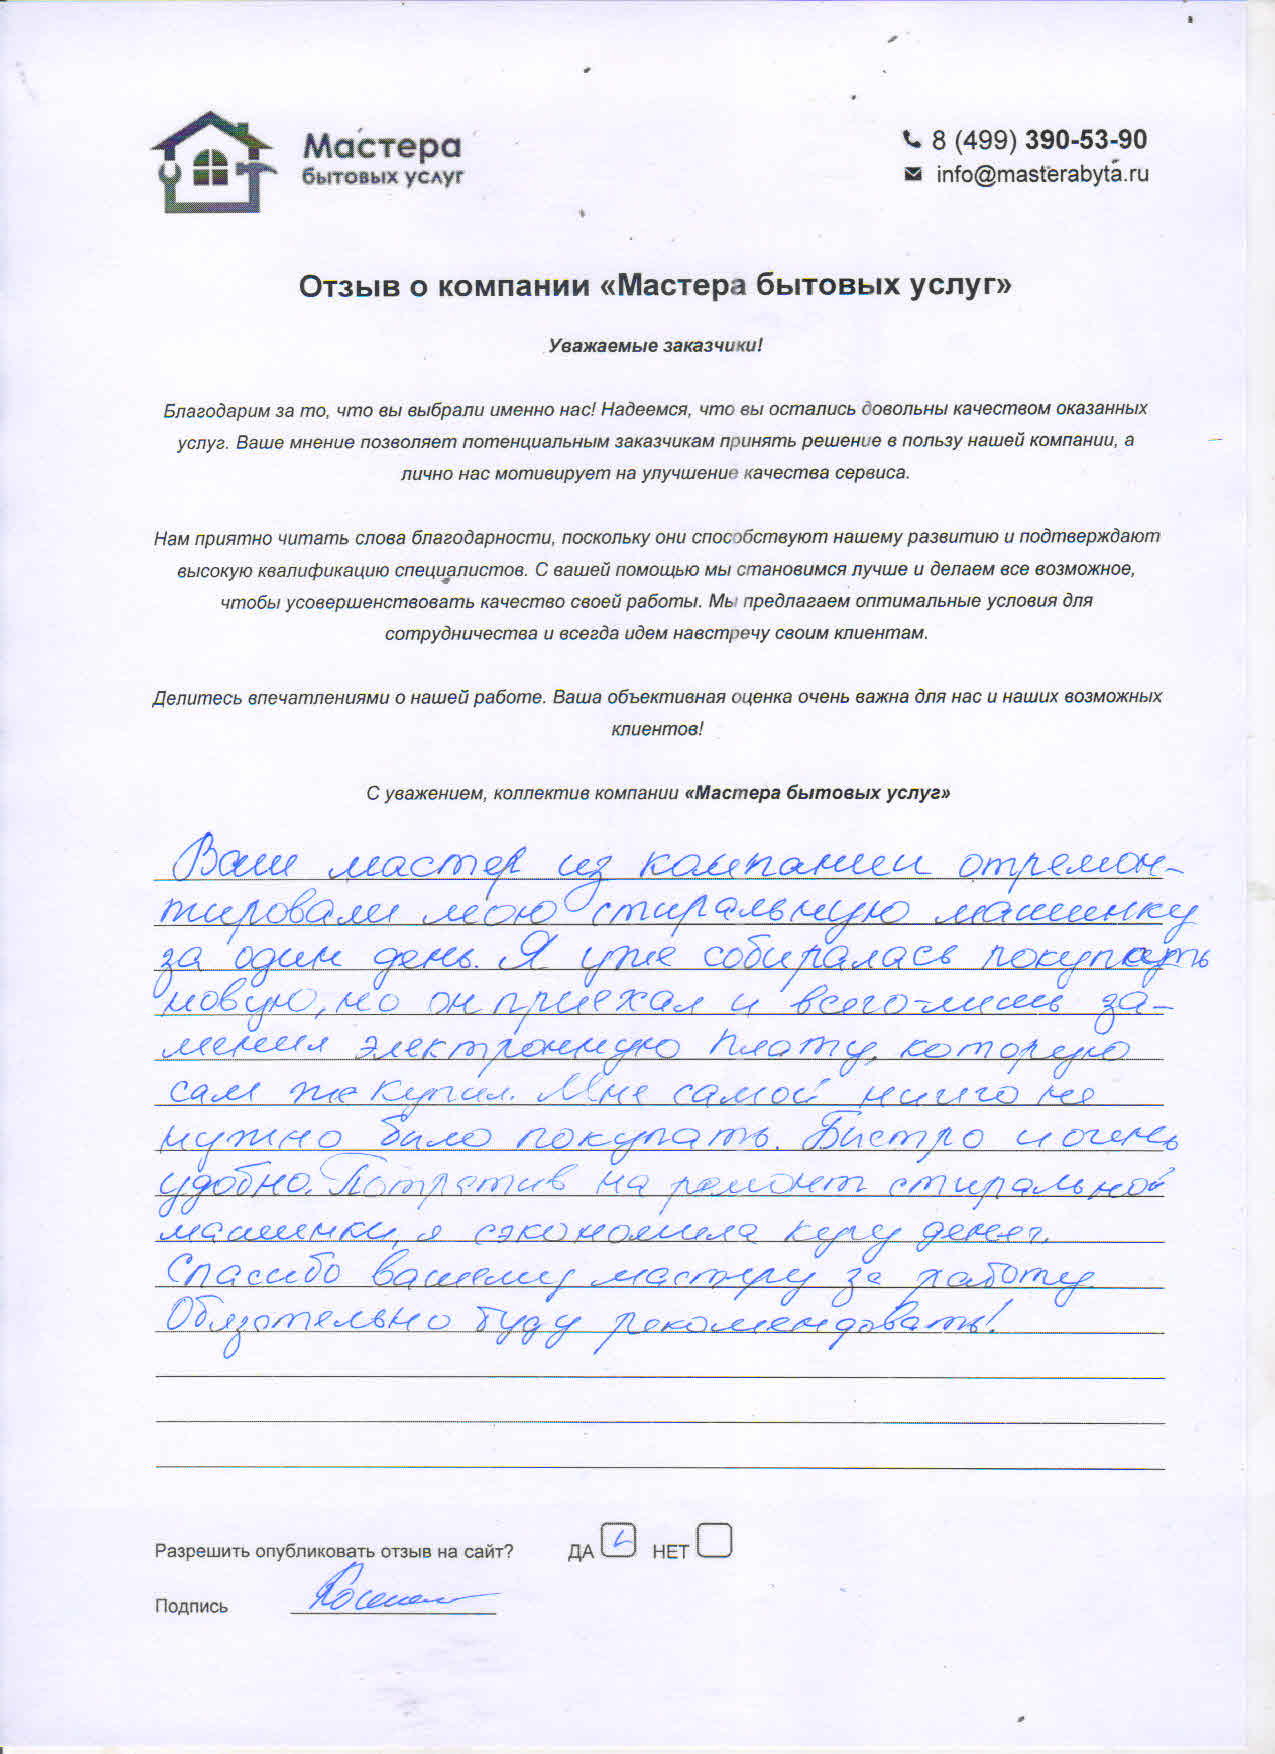 Мастера
бытовых услуг
8 (499) 390-53-90
info@masterabyta.ru
Отзыв о компании «Мастера бытовых услуг»
Уважаемые заказчики!
Благодарим за то, что вы выбрали именно нас! Надеемся, что вы остались довольны качеством оказанных
услуг. Ваше мнение позволяет потенциальным заказчикам принять решение в пользу нашей компании, а
лично нас мотивирует на улучшение качества сервиса.
Нам приятно читать слова благодарности, поскольку они способствуют нашему развитию и подтверждают
высокую квалификацию специалистов. С вашей помощью мы становимся лучше и делаем все возможное,
чтобы усовершенствовать качество своей работы. Мы предлагаем оптимальные условия для
сотрудничества и всегда идем навстречу своим клиентам.
Делитесь впечатлениями о нашей работе. Ваша объективная оценка очень важна для нас и наших возможных
клиентов!
С уважением, коллектив компании «Мастера бытовых услуг»
Ваш мастер из компании отремон-
тировали мою стиральную машинку
за один день. Я уже собиралась покупать
новую, но он приехал и всего-лишь за-
менил электронную плату, которую
сам же купил. Мне самой ничего не
нужно было покупать. Быстро и очень
удобно. Потратив на ремонт стиральной
машинки, я сэкономила кучу денег.
Спасибо вашему мастеру за работу
Обязательно буду рекомендовать!
Разрешить опубликовать отзыв на сайт? ДА НЕТ
Подпись